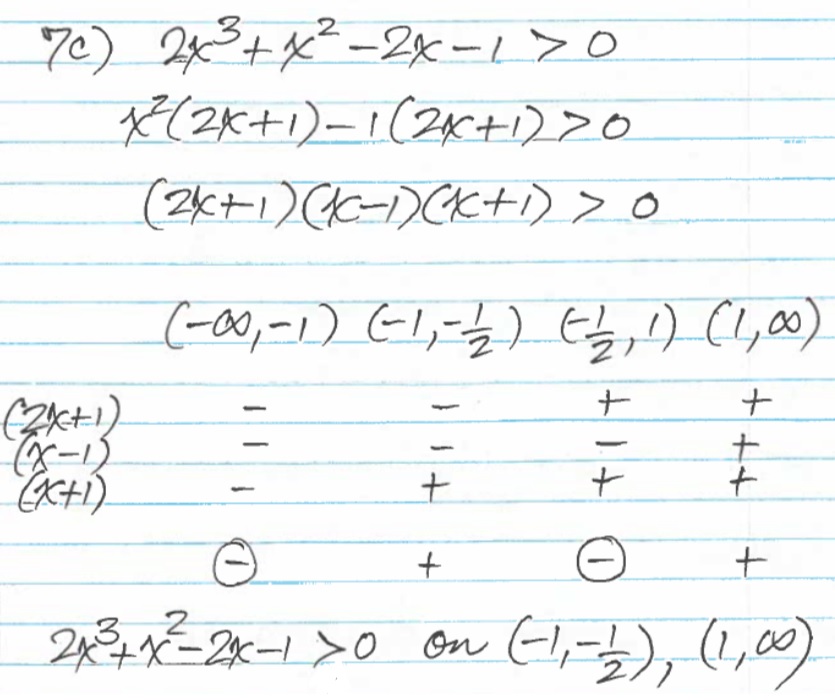 7c) 2x³+x²-2x-1 > 0
x²(2x+1)-1(2x+1) > 0
(2x+1)(x-1)(x+1) > 0
(-∞,-1) (-1,-1/2) (-1/2,1) (1,∞)
(2x+1) - - + +
(x-1) - - - +
(x+1) - + + +
⊖ + ⊖ +
2x³+x²-2x-1 > 0 on (-1,-1/2), (1,∞)